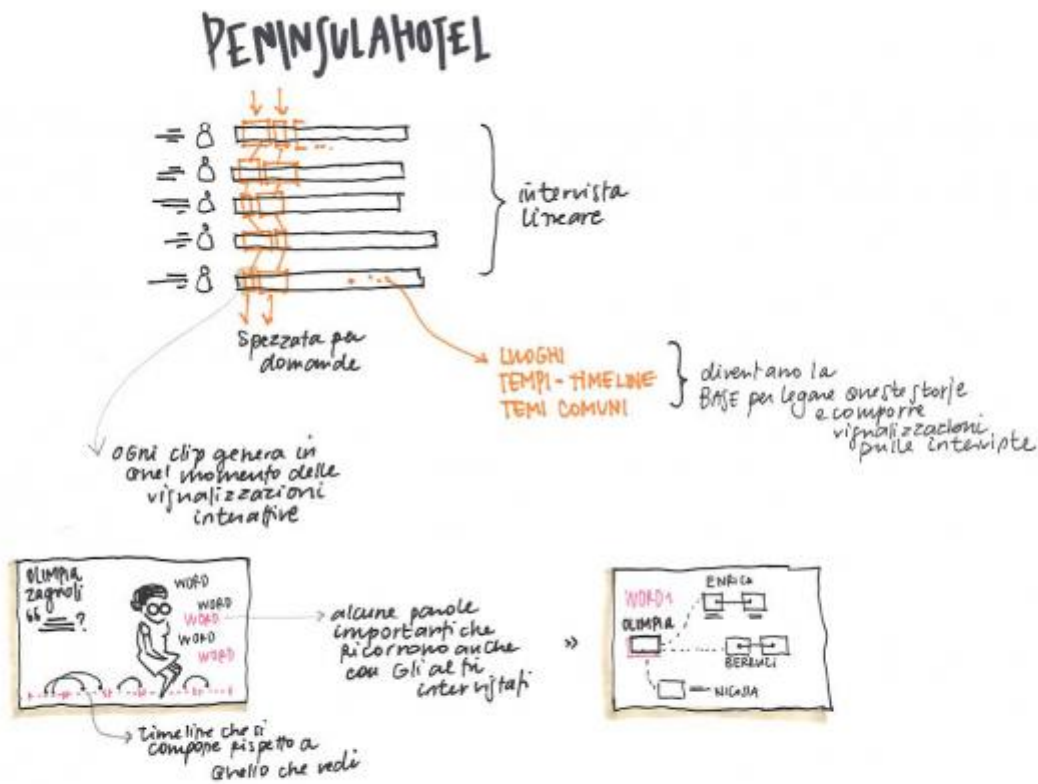 PENINSULAHOTEL
intervista
lineare
spezzata per
domande
LUOGHI
TEMPI - TIMELINE
TEMI COMUNI
diventano la
BASE per legare queste storie
e comporre
visualizzazioni
sulle interviste
OGni clip genera in
quel momento delle
visualizzazioni
interattive
OLIMPIA
zagnoli
66 ?
WORD
WORD
WORD
WORD
WORD
alcune parole
importanti che
ricorrono anche
con Gli altri
intervistati
»
WORD1
OLIMPIA
ENRICA
BERRUCI
NICOSIA
timeline che si
compone rispetto a
quello che vedi